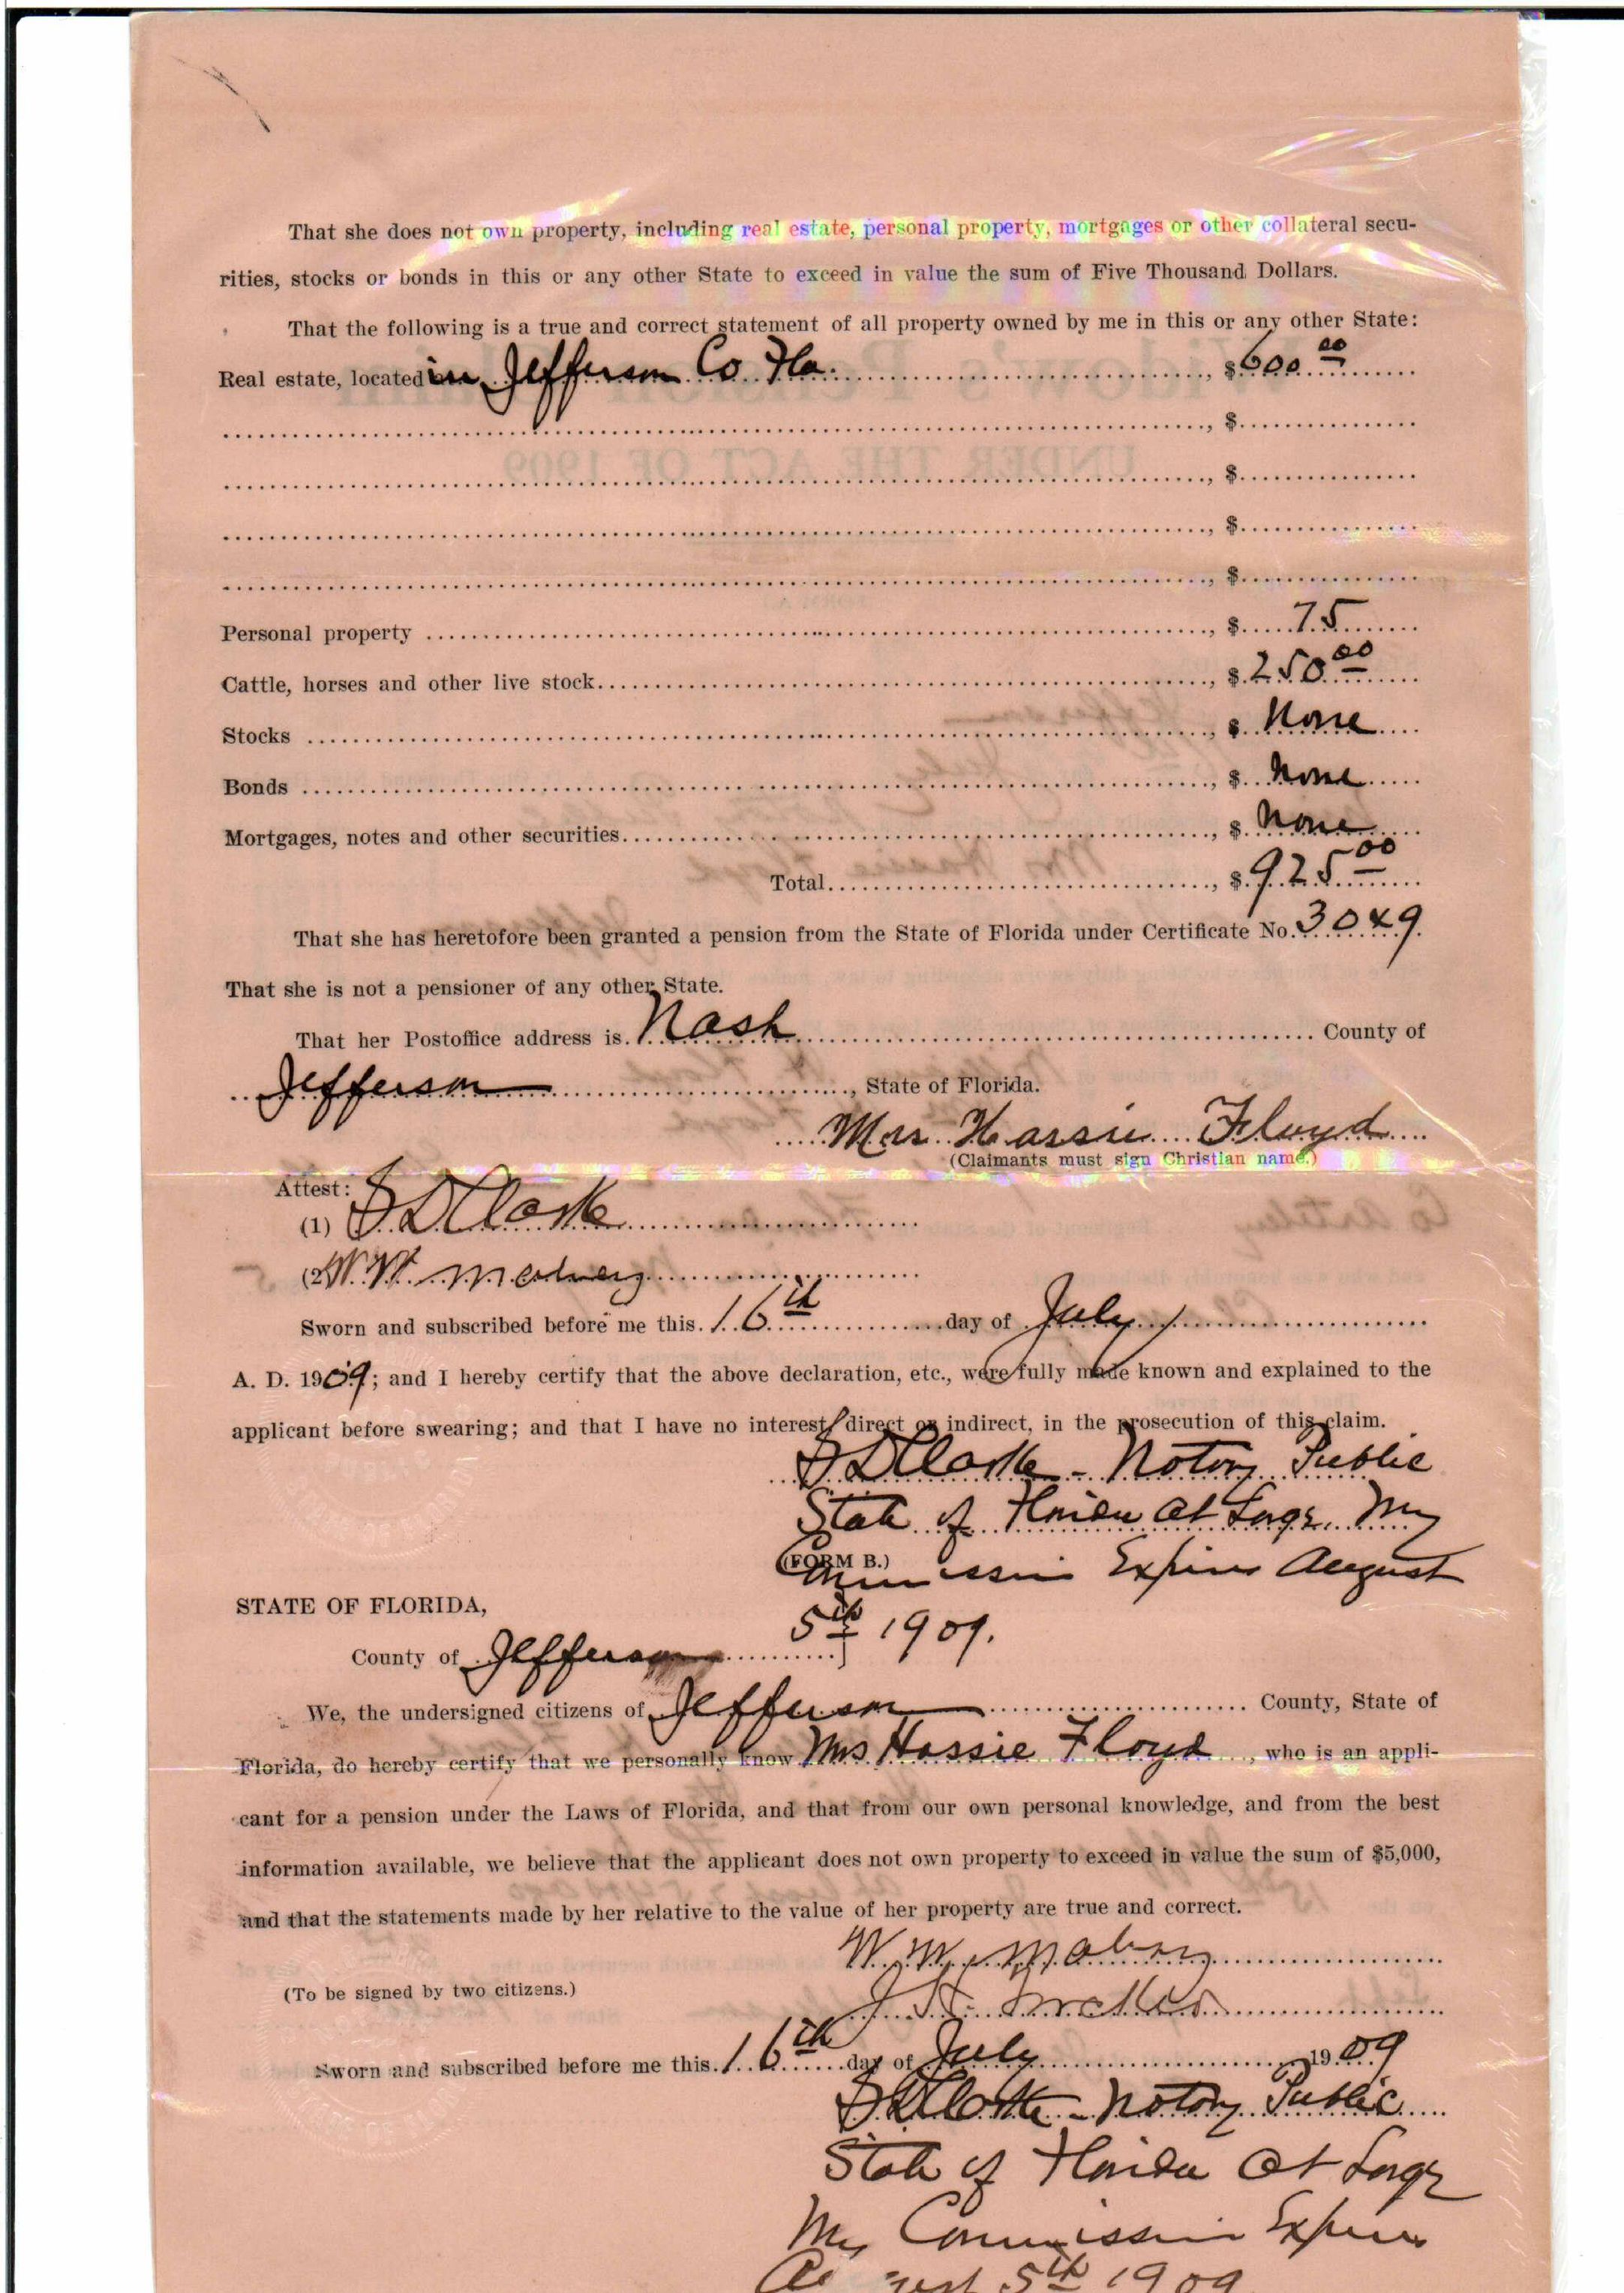 That she does not own property, including real estate, personal property, mortgages or other collateral secu-
rities, stocks or bonds in this or any other State to exceed in value the sum of Five Thousand Dollars.
That the following is a true and correct statement of all property owned by me in this or any other State:
Real estate, located in Jefferson Co Fla. , $600 00
, $
, $
, $
, $
Personal property , $ 75
Cattle, horses and other live stock , $ 250 00
Stocks , $ None
Bonds , $ None
Mortgages, notes and other securities , $ None
Total , $ 925 00
That she has heretofore been granted a pension from the State of Florida under Certificate No. 3049
That she is not a pensioner of any other State.
That her Postoffice address is Nash County of
Jefferson , State of Florida.
Mrs Hassie Floyd
(Claimants must sign Christian name.)
Attest:
(1) S D Clarke
(2) W. W.
Sworn and subscribed before me this 16th day of July
A. D. 1909; and I hereby certify that the above declaration, etc., were fully made known and explained to the
applicant before swearing; and that I have no interest, direct or indirect, in the prosecution of this claim.
S D Clarke - Notary Public
State of Florida at Large. My
(FORM B.)
Commission Expires August
5th 1909.
STATE OF FLORIDA,
County of Jefferson }
We, the undersigned citizens of Jefferson County, State of
Florida, do hereby certify that we personally know Mrs Hassie Floyd , who is an appli-
cant for a pension under the Laws of Florida, and that from our own personal knowledge, and from the best
information available, we believe that the applicant does not own property to exceed in value the sum of $5,000,
and that the statements made by her relative to the value of her property are true and correct.
W. W.
(To be signed by two citizens.)
Sworn and subscribed before me this 16th day of July 1909
S D Clarke - Notary Public
State of Florida at Large
My Commission Expires
August 5th 1909